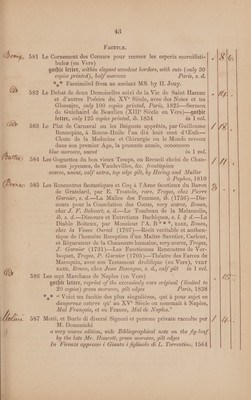 43
FACETIÆ.
581 Le Cornement des Cornars pour recreer les esperis encornifisti-
bulez (en Vers)
gothic letter, within elegant woodcut borders, with cuts (only 30
copies printed), half morocco Paris, s. d.
*** Facsimiled from an ancient MS. by H. Jouy.
582 Le Debat de deux Demoiselles suivi de la Vie de Saint Harenc
et d'autres Poésies du XVe Siècle, avec des Notes et un
Glossaire, only 100 copies printed, Paris, 1825—Sermon
de Guichard de Beaulieu (XIIIe Siècle en Vers)—gothic
letter, only 125 copies printed, ib. 1834 in 1 vol.
583 Le Plat de Carnaval ou les Beignets apprêtés, par Guillaume
Bonnepâte, à Bonne-Huile l'an dix huit cent d'Œuf—
Chute de la Medecine et Chirurgie ou le Monde revenu
dans son premier Age, la presente année, 000000000
blue morocco, uncut in 1 vol.
584 Les Goguettes du bon vieux Temps, ou Recueil choisi de Chan-
sons joyeuses, de Vaudevilles, &c. frontispiece
scarce, uncut, calf extra, top edge gilt, by Hering and Muller
à Paphos, 1810
585 Les Rencontres fantastiques et Coq à l'Asne facetieux du Baron
de Gratelard, par E. Trostole, rare, Troyes, chez Pierre
Garnier, s. d.—La Malice des Femmes, ib. (1736)—Dis-
cours pour la Consolation des Cocus, very scarce, Rouen,
chez J. F. Behourt, s. d.—Le Tombeau de la Melancolie,
ib. s. d.—Discours et Entretiens Bachiques, s. l. & d.—Le
Diable Boiteux, par Monsieur l'A. B * * *, very rare,
chez la Veuve Oursel (1707)—Récit veritable et authen-
tique de l'honnête Reception d'un Maître Savetier, Carleur,
et Réparateur de la Chaussure humaine, very scarce, Troyes,
J. Garnier (1731)—Les Fanfaronnes Rencontres de Ver-
boquet, Troyes, P. Garnier (1705)—Théatre des Farces de
Maroquin, avec son Testament drolifique (en Vers), very
rare. Rouen, chez Jean Besongne, s. d., calf gilt in 1 vol.
586 Les sept Marchans de Naples (en Vers)
gothic letter, reprint of the excessively rare original (limited to
20 copies) green morocco, gilt edges Paris, 1838
*** “Voici un facétie des plus singulières, qui a pour sujet ce
dangereux caterre qu' au XVe Siècle on nommait à Naples,
Mal Français, et en France, Mal de Naples.”
587 Motti, et Burle di diversi Signori et persone private raccolte per
M. Domenichi
a very scarce edition, vide Bibliographical note on the fly-leaf
by the late Mr. Howard, green morocco, gilt edges
In Vicenza appresso i Gianio i figliuolo di L. Torrentino, 1564